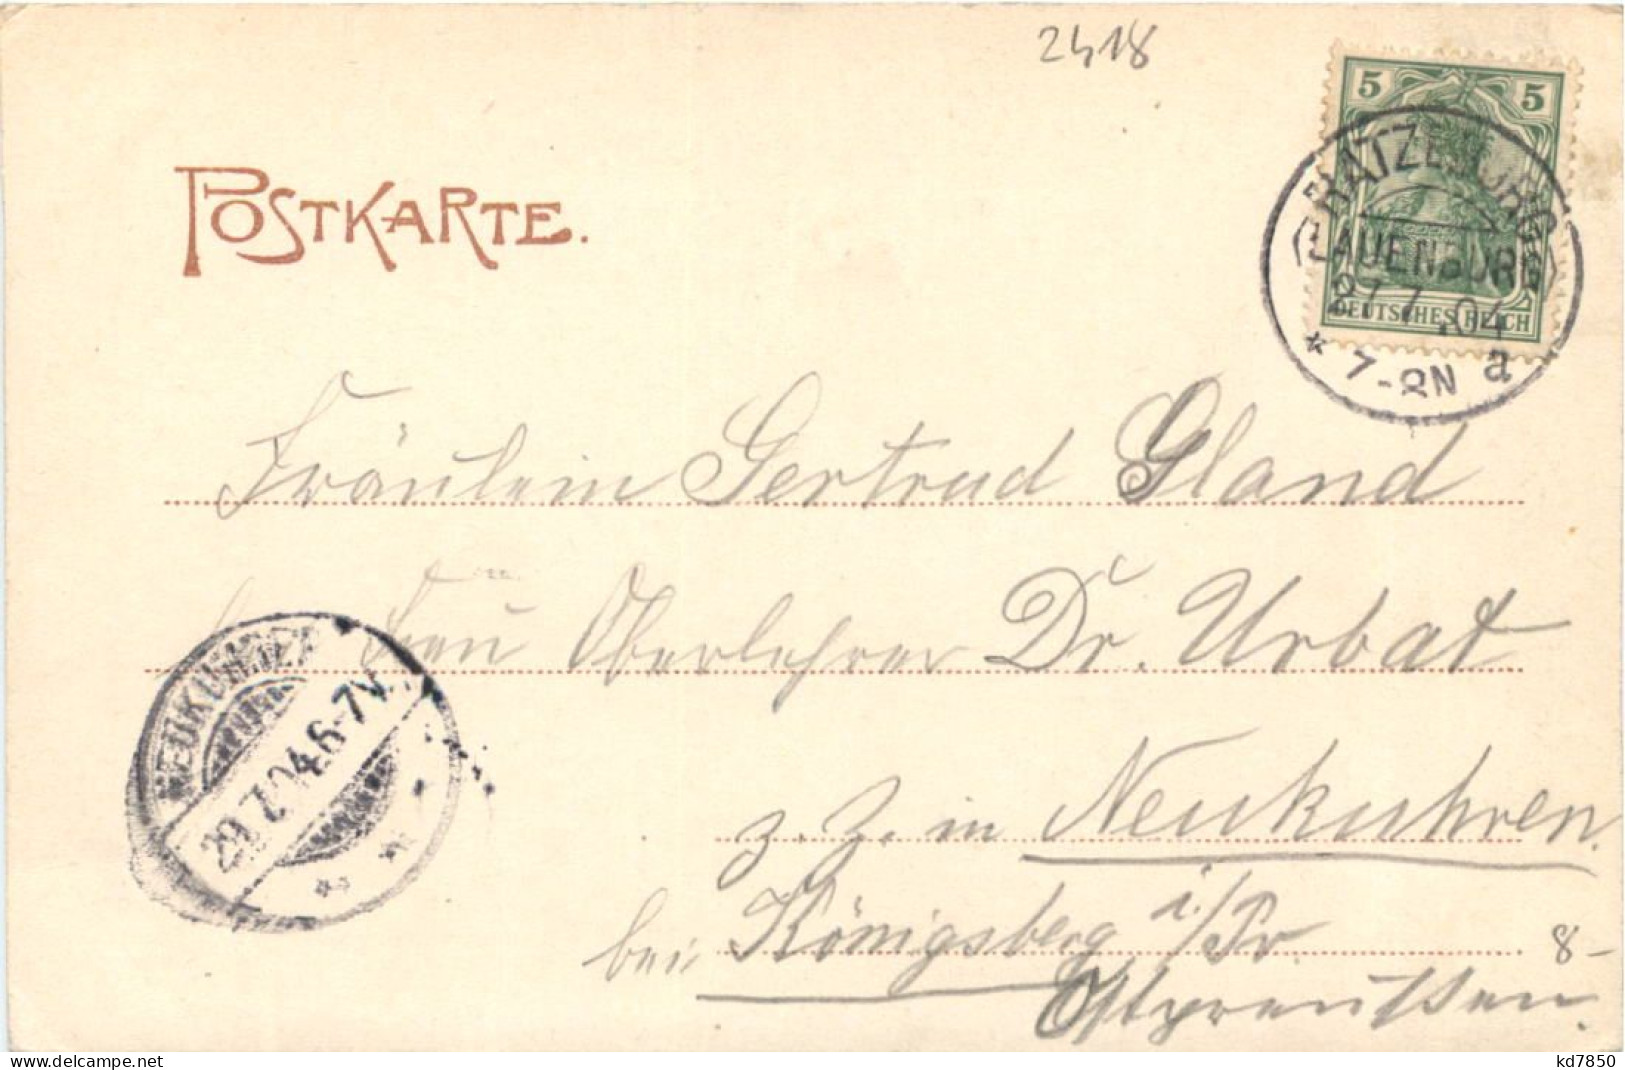 2418
POSTKARTE.
5 5
RATZEBURG
(LAUENBURG)
27.7.04
* 7-8N a
DEUTSCHES REICH
Fräulein Gertrud Gland
Frau Oberlehrer Dr. Urbat
NEUKUHREN
29.7.04.6-7V.
z. Z. in Neukuhren.
bei Königsberg i./Pr
Ostpreußen.
8-
kd7850